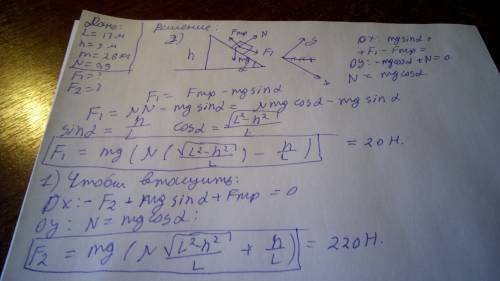 Дано:
L = 13 м
h = 5 м
m = 26 кг
N = 0,5
F₁ = ?
F₂ = ?
Решение:
2)
Fтр N F₁ h mg α y x
Ox: mg sinα +
+ F₁ - Fтр =
Oy: -mg cosα + N = 0
N = mg cosα
F₁ = Fтр - mg sinα
F₁ = NN - mg sinα = Nmg cosα - mg sinα
sinα = h/L cosα = √(L²-h²)/L
F₁ = mg (N (√(L²-h²)/L) - h/L) = 20 Н.
1) Чтобы втащить:
Ox: - F₂ + mg sinα + Fтр = 0
Oy: N = mg cosα:
F₂ = mg (N √(L²-h²)/L + h/L) = 220 Н.